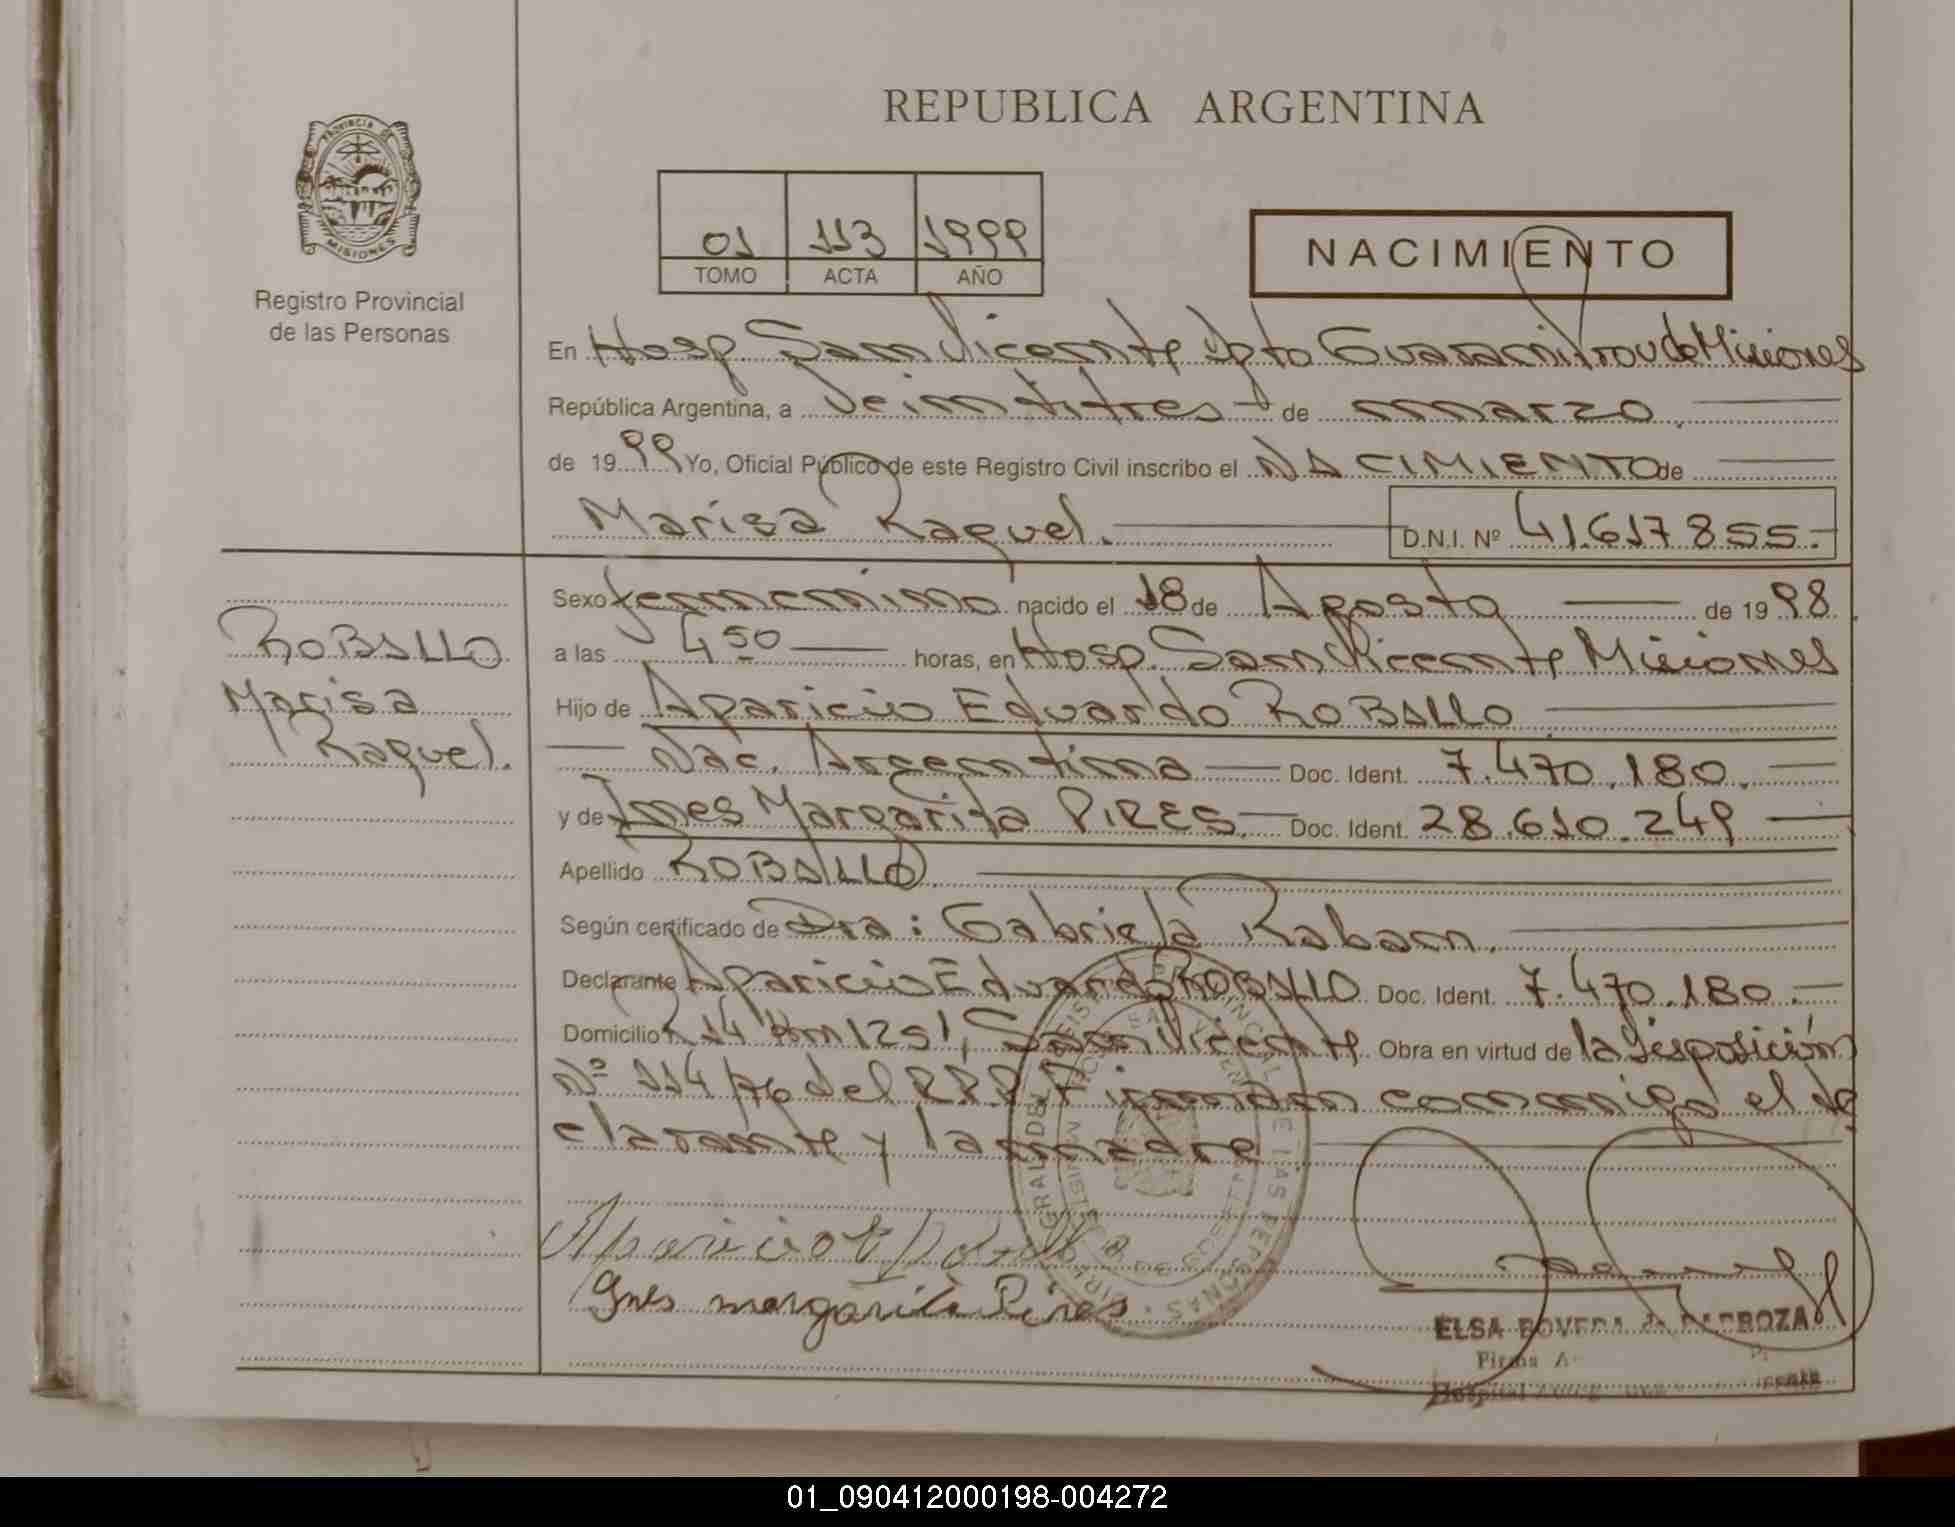 REPUBLICA ARGENTINA
PROVINCIA DE
MISIONES
Registro Provincial
de las Personas
01 113 1999
TOMO ACTA AÑO
NACIMIENTO
En Hosp. San Vicente Dpto Guarani Prov de Misiones
República Argentina, a Veintitres de marzo
de 1999 Yo, Oficial Público de este Registro Civil inscribo el NACIMIENTO de
Marisa Raquel. D.N.I. Nº 41.617.855.-
Sexo femenino nacido el 18 de Agosto de 1998
a las 4 50 horas, en Hosp. San Vicente Misiones
Hijo de Aparicio Eduardo ROBALLO
Nac. Argentina Doc. Ident. 7.470.180.
y de Ines Margarita PIRES. Doc. Ident. 28.610.249
Apellido ROBALLO
Según certificado de Dra: Gabriela Raban.
Declarante Aparicio Eduardo ROBALLO Doc. Ident. 7.470.180.-
Domicilio R 14 Km 1251, San Vicente Obra en virtud de la Disposición
Nº 114/76 del R.P.P. Firman conmigo el de
clarante y la madre
ROBALLO
Marisa
Raquel.
Aparicio E
Ines margarita Pires
ELSA BOVEDA de BARBOZA
Firma
Hospital
01_090412000198-004272